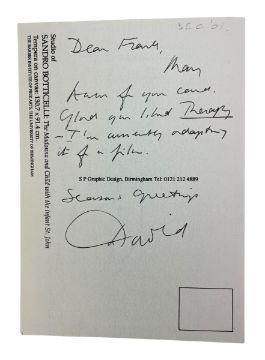 Dear Frank,
Many
thanks for your card.
Glad you liked Therapy
- I'm currently adapting
it for a film.
Season's greetings
David
Studio of
SANDRO BOTTICELLI: The Madonna and Child with the Infant St. John
Tempera on canvas: 130.7 x 91.4 cm.
THE BARBER INSTITUTE OF FINE ARTS, THE UNIVERSITY OF BIRMINGHAM
S P Graphic Design, Birmingham Tel: 0121 212 4889